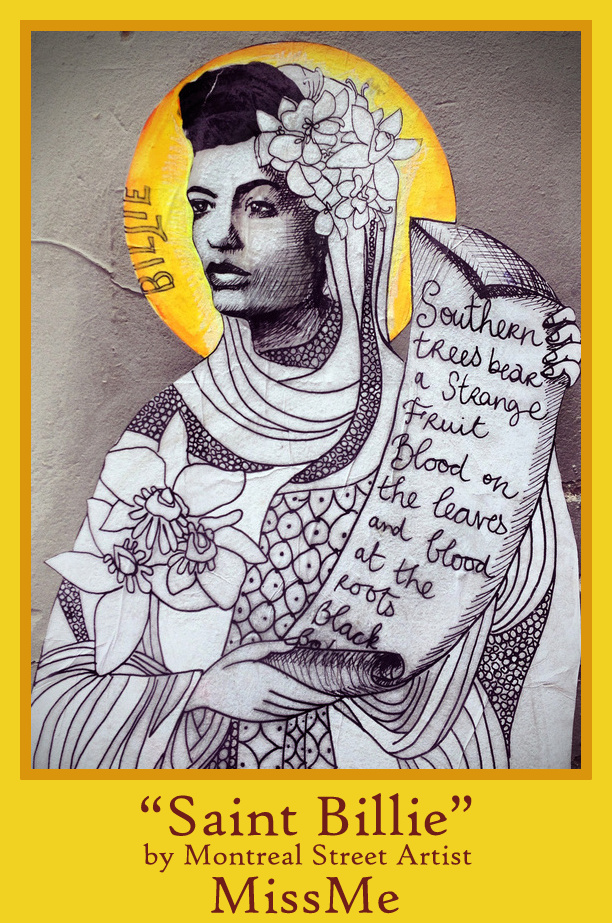 BILLIE
Southern
trees bear
a Strange
Fruit
Blood on
the leaves
and blood
at the
roots
Black
“Saint Billie”
by Montreal Street Artist
MissMe